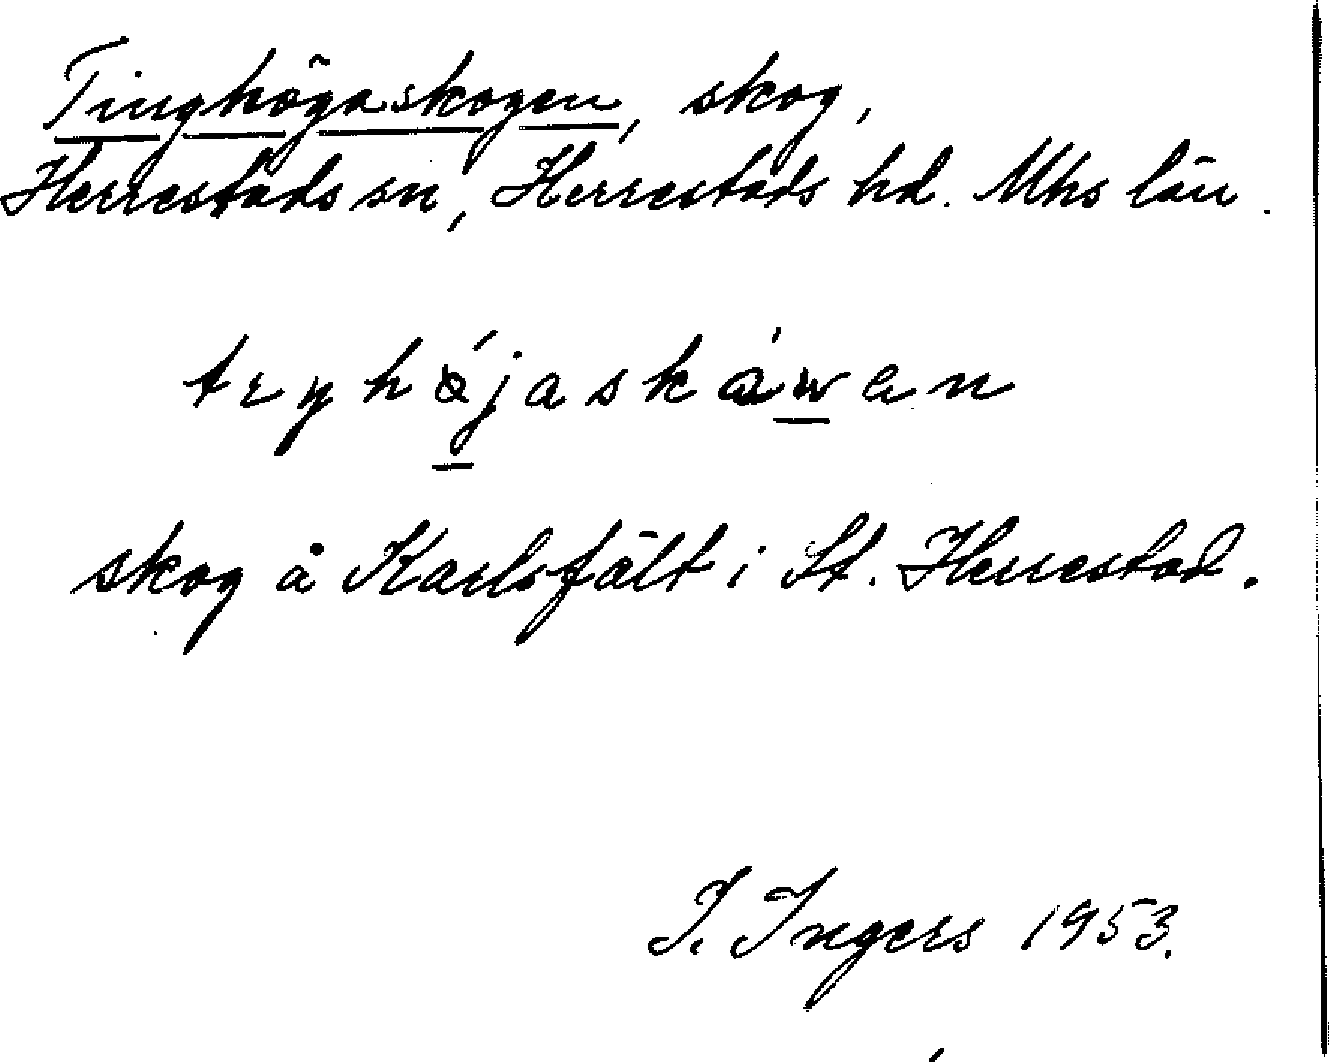 Tinghögaskogen, skog,
Herrestads sn, Herrestads hd. Mhs län.
skog å Karlsfält i St. Herrestad.
I. Ingers 1953.